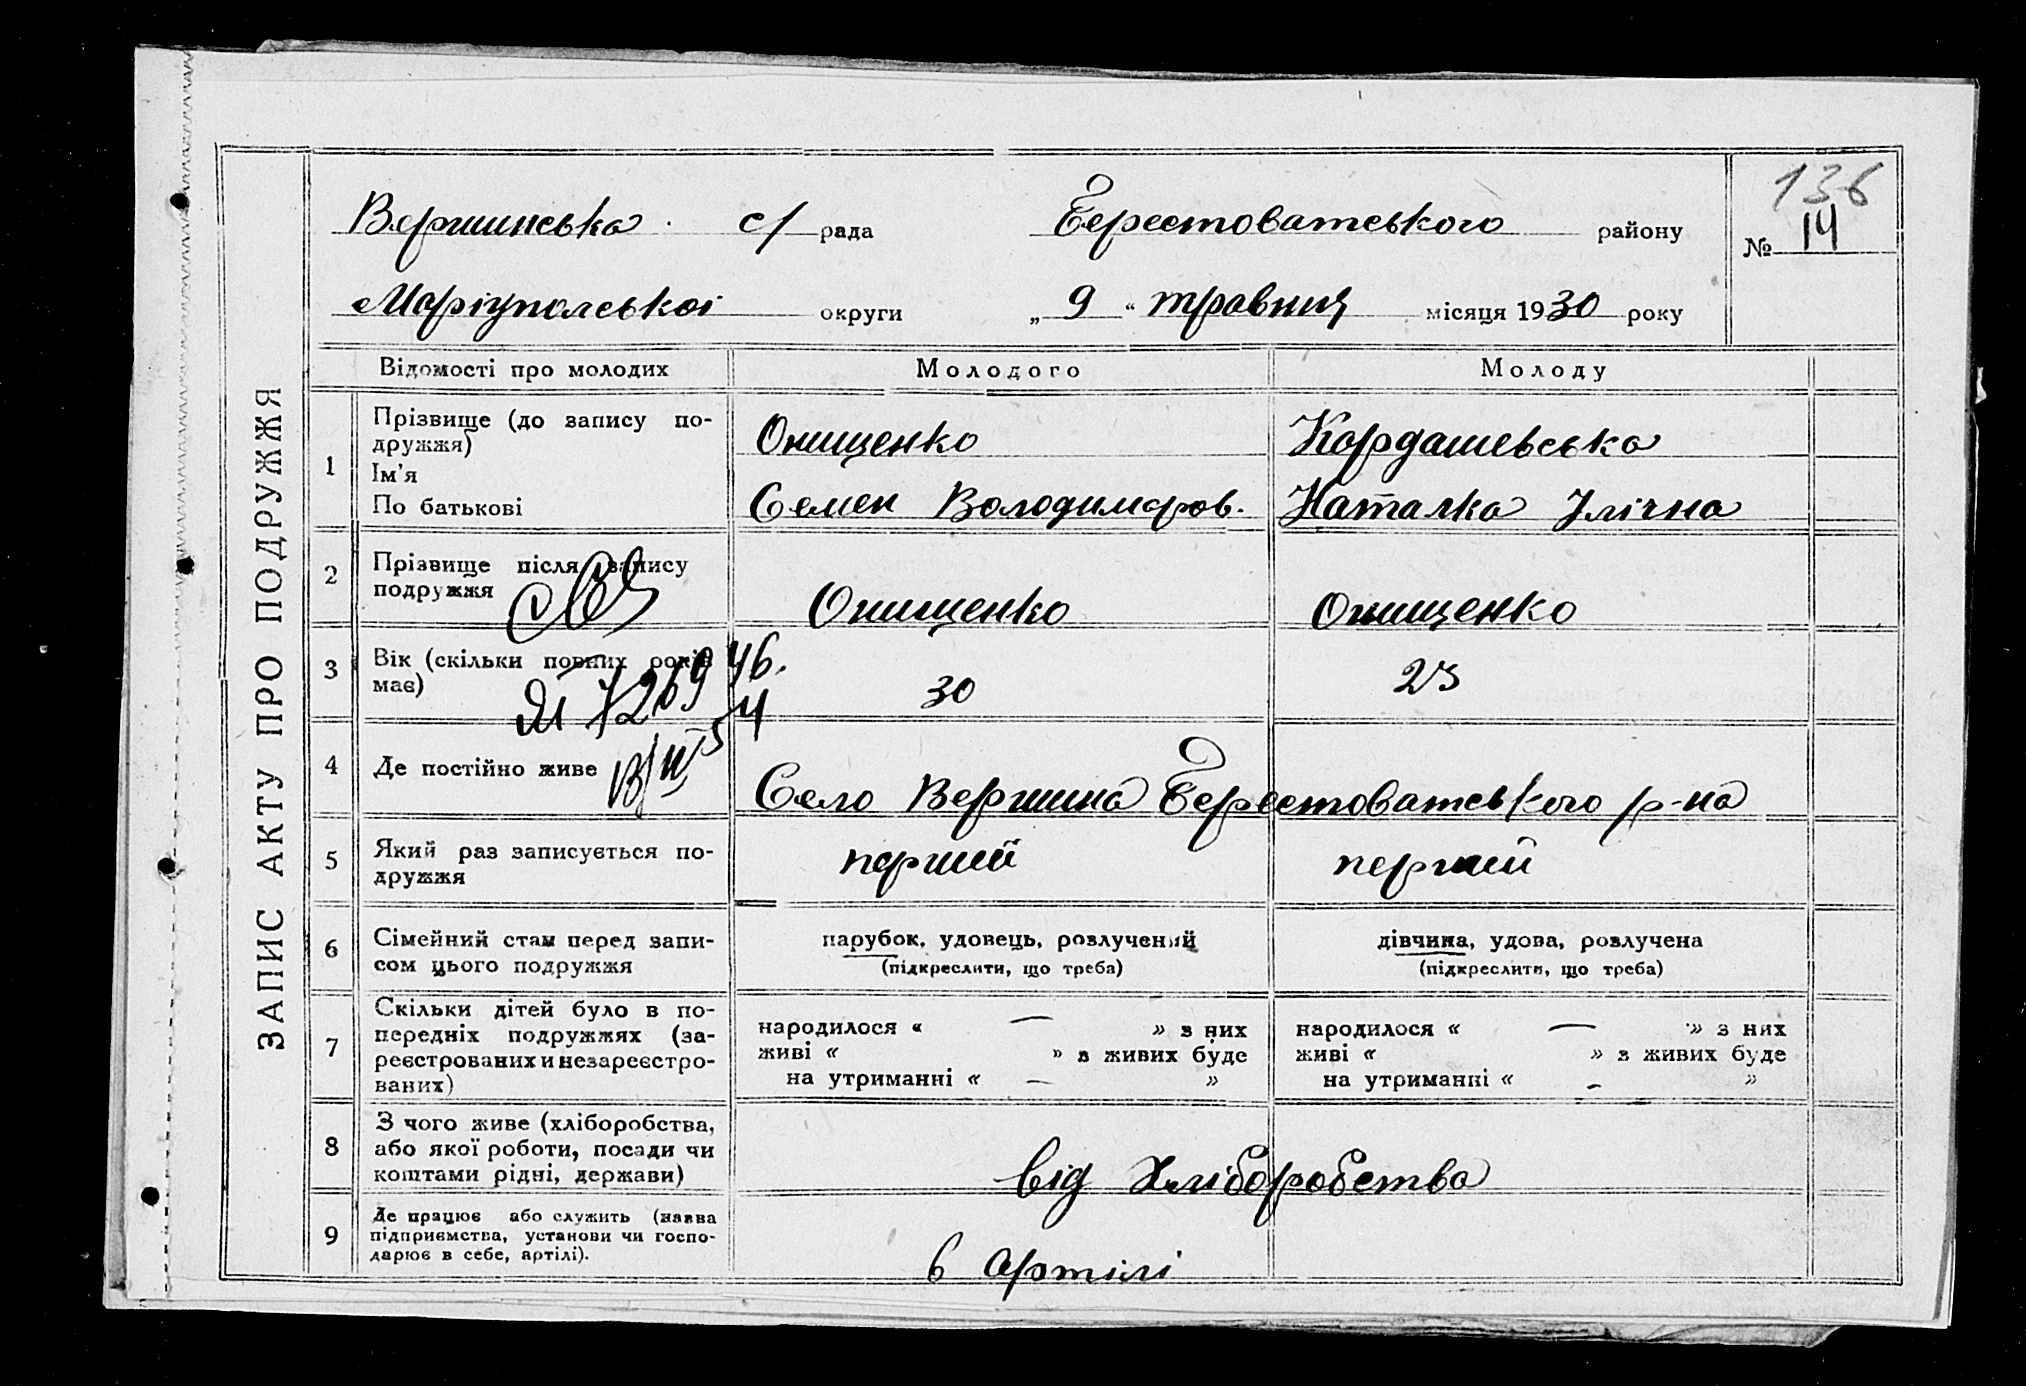 136
Вершинська с/ рада Берестоватського району № 14
Маріупольської округи „ 9 “ травня місяця 1930 року
ЗАПИС АКТУ ПРО ПОДРУЖЖЯ
Відомості про молодих Молодого Молоду
1 Прізвище (до запису по-
дружжя) Онищенко Кордашевська
Ім'я
По батькові Семен Володимиров. Наталка Ілічна
2 Прізвище після запису
подружжя Онищенко Онищенко
3 Вік (скільки повних років
має) 30 23
4 Де постійно живе Село Вершина Берестоватського р-на
5 Який раз записується по-
дружжя перший перший
6 Сімейний стан перед запи-
сом цього подружжя
парубок, удовець, розлучений дівчина, удова, розлучена
(підкреслити, що треба) (підкреслити, що треба)
7 Скільки дітей було в по-
передніх подружжях (за-
реєстрованих и незареєстро-
ваних)
народилося « — » з них народилося « — » з них
живі « » з живих буде живі « » з живих буде
на утриманні « — » на утриманні « – »
8 З чого живе (хліборобства,
або якої роботи, посади чи
коштами рідні, держави) від Хліборобства
9 Де працює або служить (назва
підприємства, установи чи госпо-
дарює в себе, артілі). в артілі